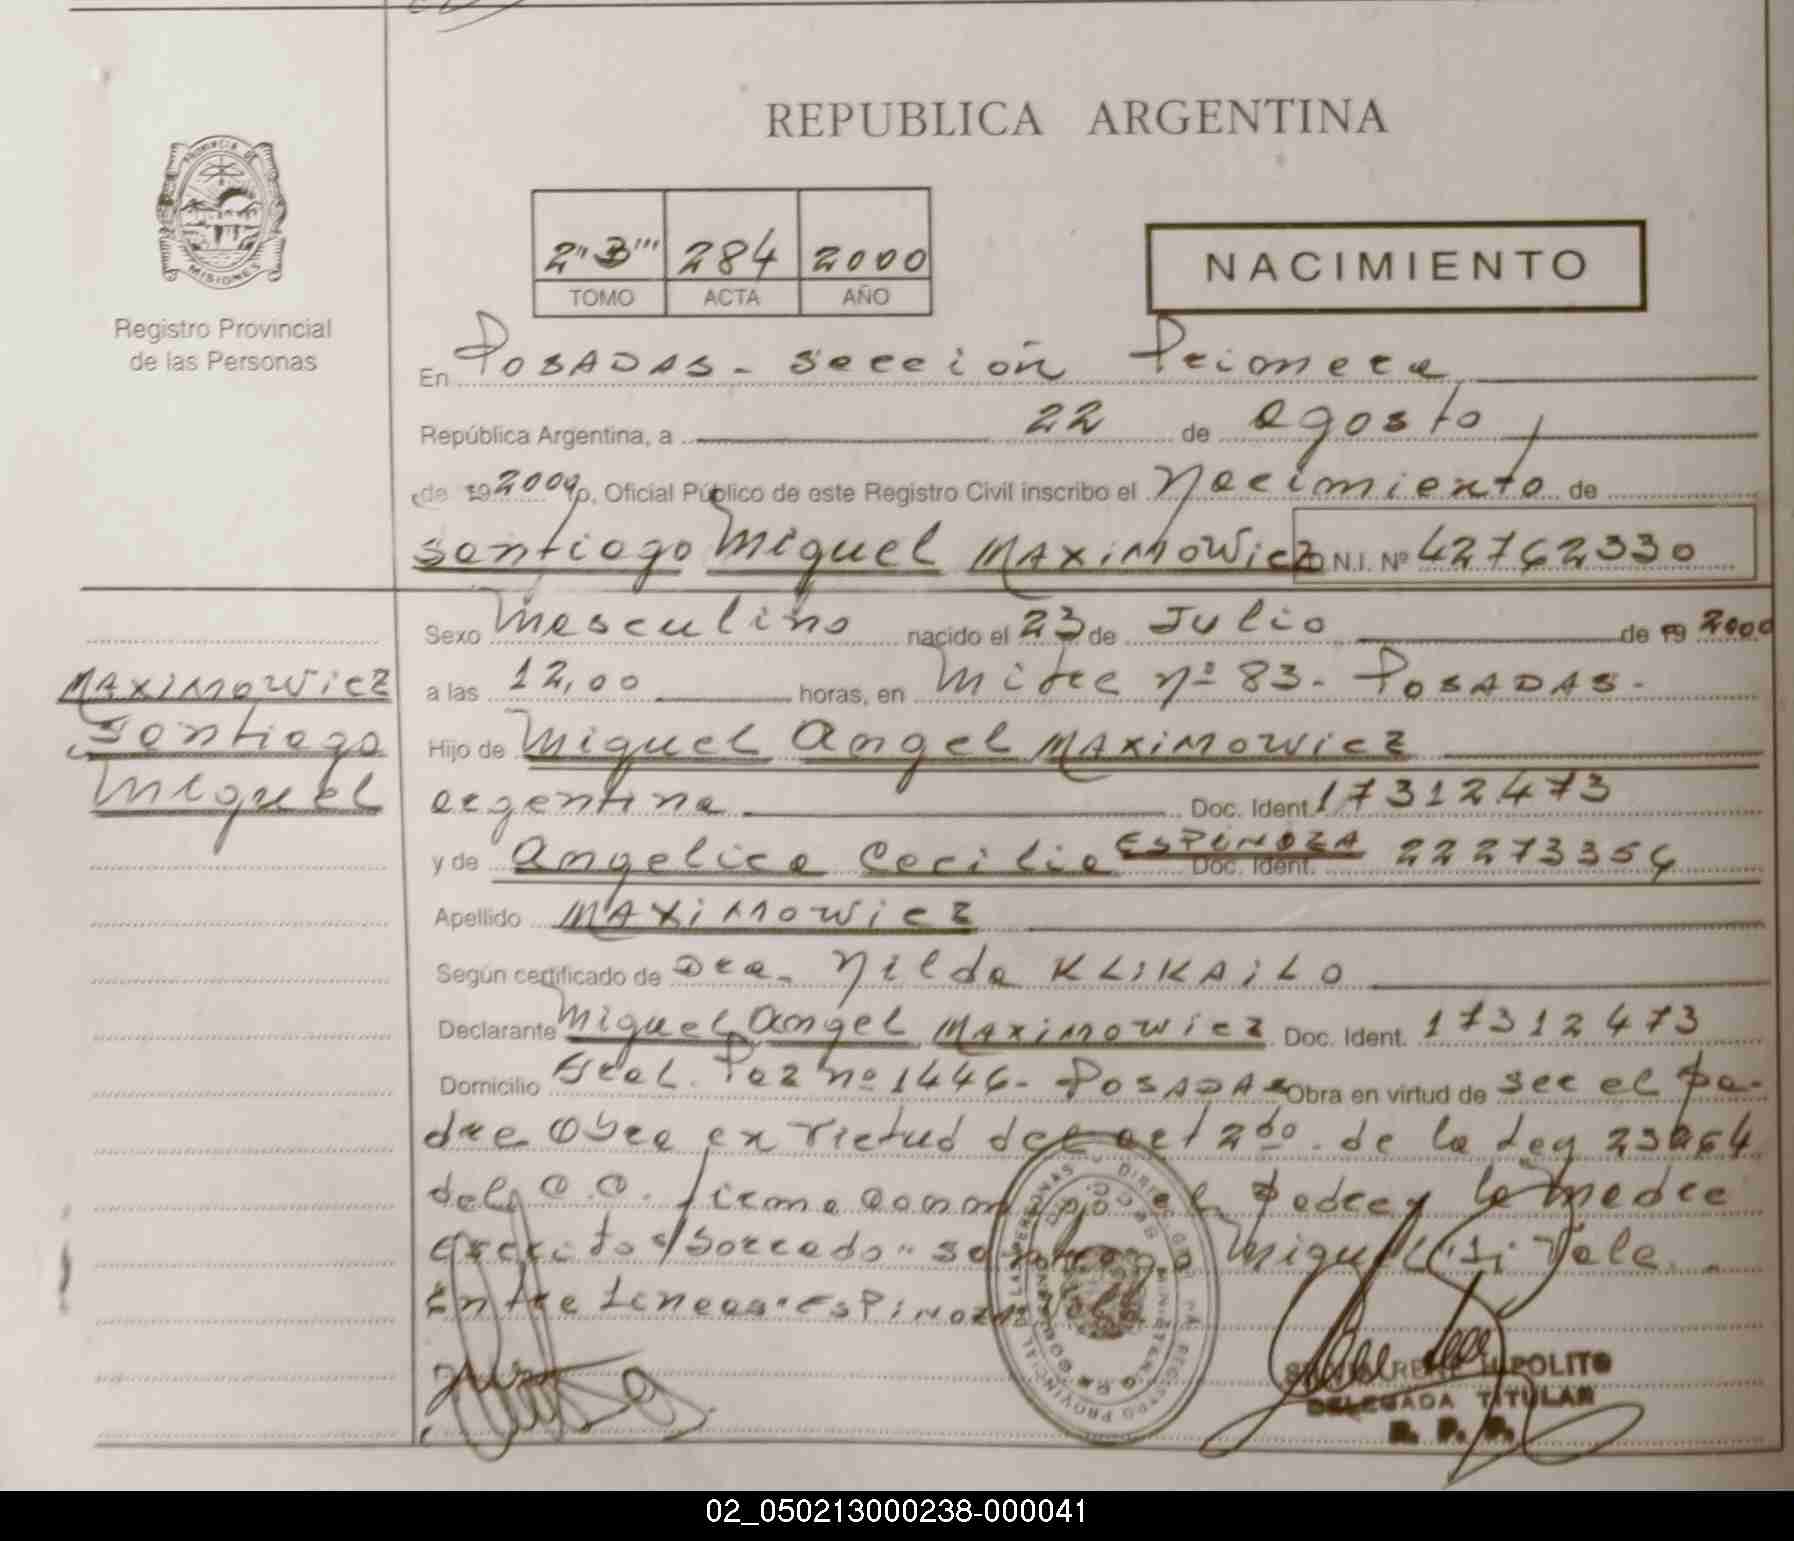 REPUBLICA ARGENTINA
PROVINCIA DE
MISIONES
Registro Provincial
de las Personas
2"B" 284 2000
TOMO ACTA AÑO
NACIMIENTO
En POSADAS - sección Primera
República Argentina, a 22 de agosto
de 19 2000 yo, Oficial Público de este Registro Civil inscribo el Nacimiento de
Santiago Miguel MAXIMOWICZ D.N.I. Nº 42762330
Sexo Masculino nacido el 23 de Julio de 19 2000
a las 12,00 horas, en Mitre nº 83 - POSADAS -
MAXIMOWICZ
Santiago
Miguel
Hijo de Miguel Angel MAXIMOWICZ
argentina Doc. Ident. 17312473
y de Angelica Cecilia ESPINOZA Doc. Ident. 22273354
Apellido MAXIMOWICZ
Según certificado de Dra. Nilda KLIKAILO
Declarante Miguel Angel MAXIMOWICZ Doc. Ident. 17312473
Domicilio Gral. Paz nº 1446 - POSADAS Obra en virtud de ser el pa-
dre Obra en virtud del art 2do. de la Ley 23264
del C.C. firma el Padre y la madre
"borrado" Miguel Vale.
Entre Lineas "ESPINOZA"
HIPOLITO
DELEGADA TITULAR
R. P. P.
02_050213000238-000041